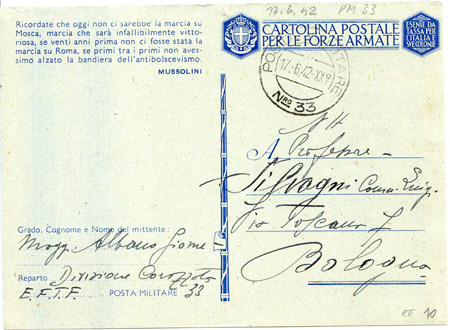 17.6.42 PM 33
Ricordate che oggi non ci sarebbe la marcia su
Mosca, marcia che sarà infallibilmente vitto-
riosa, se venti anni prima non ci fosse stata la
marcia su Roma, se primi tra i primi non aves-
simo alzato la bandiera dell'antibolscevismo.
MUSSOLINI
CARTOLINA POSTALE
PER LE FORZE ARMATE
ESENTE DA
TASSA PER
L'ITALIA E
SVE COLONIE
17.-6.42-XX
Nro 33
A Professore
Silvagni Comm. Luigi
Via Toscana
Bologna
Grado, Cognome e Nome del mittente:
Magg. Albano
Reparto Divisione Corazzata
E.F.T.F. POSTA MILITARE 33
EE 10